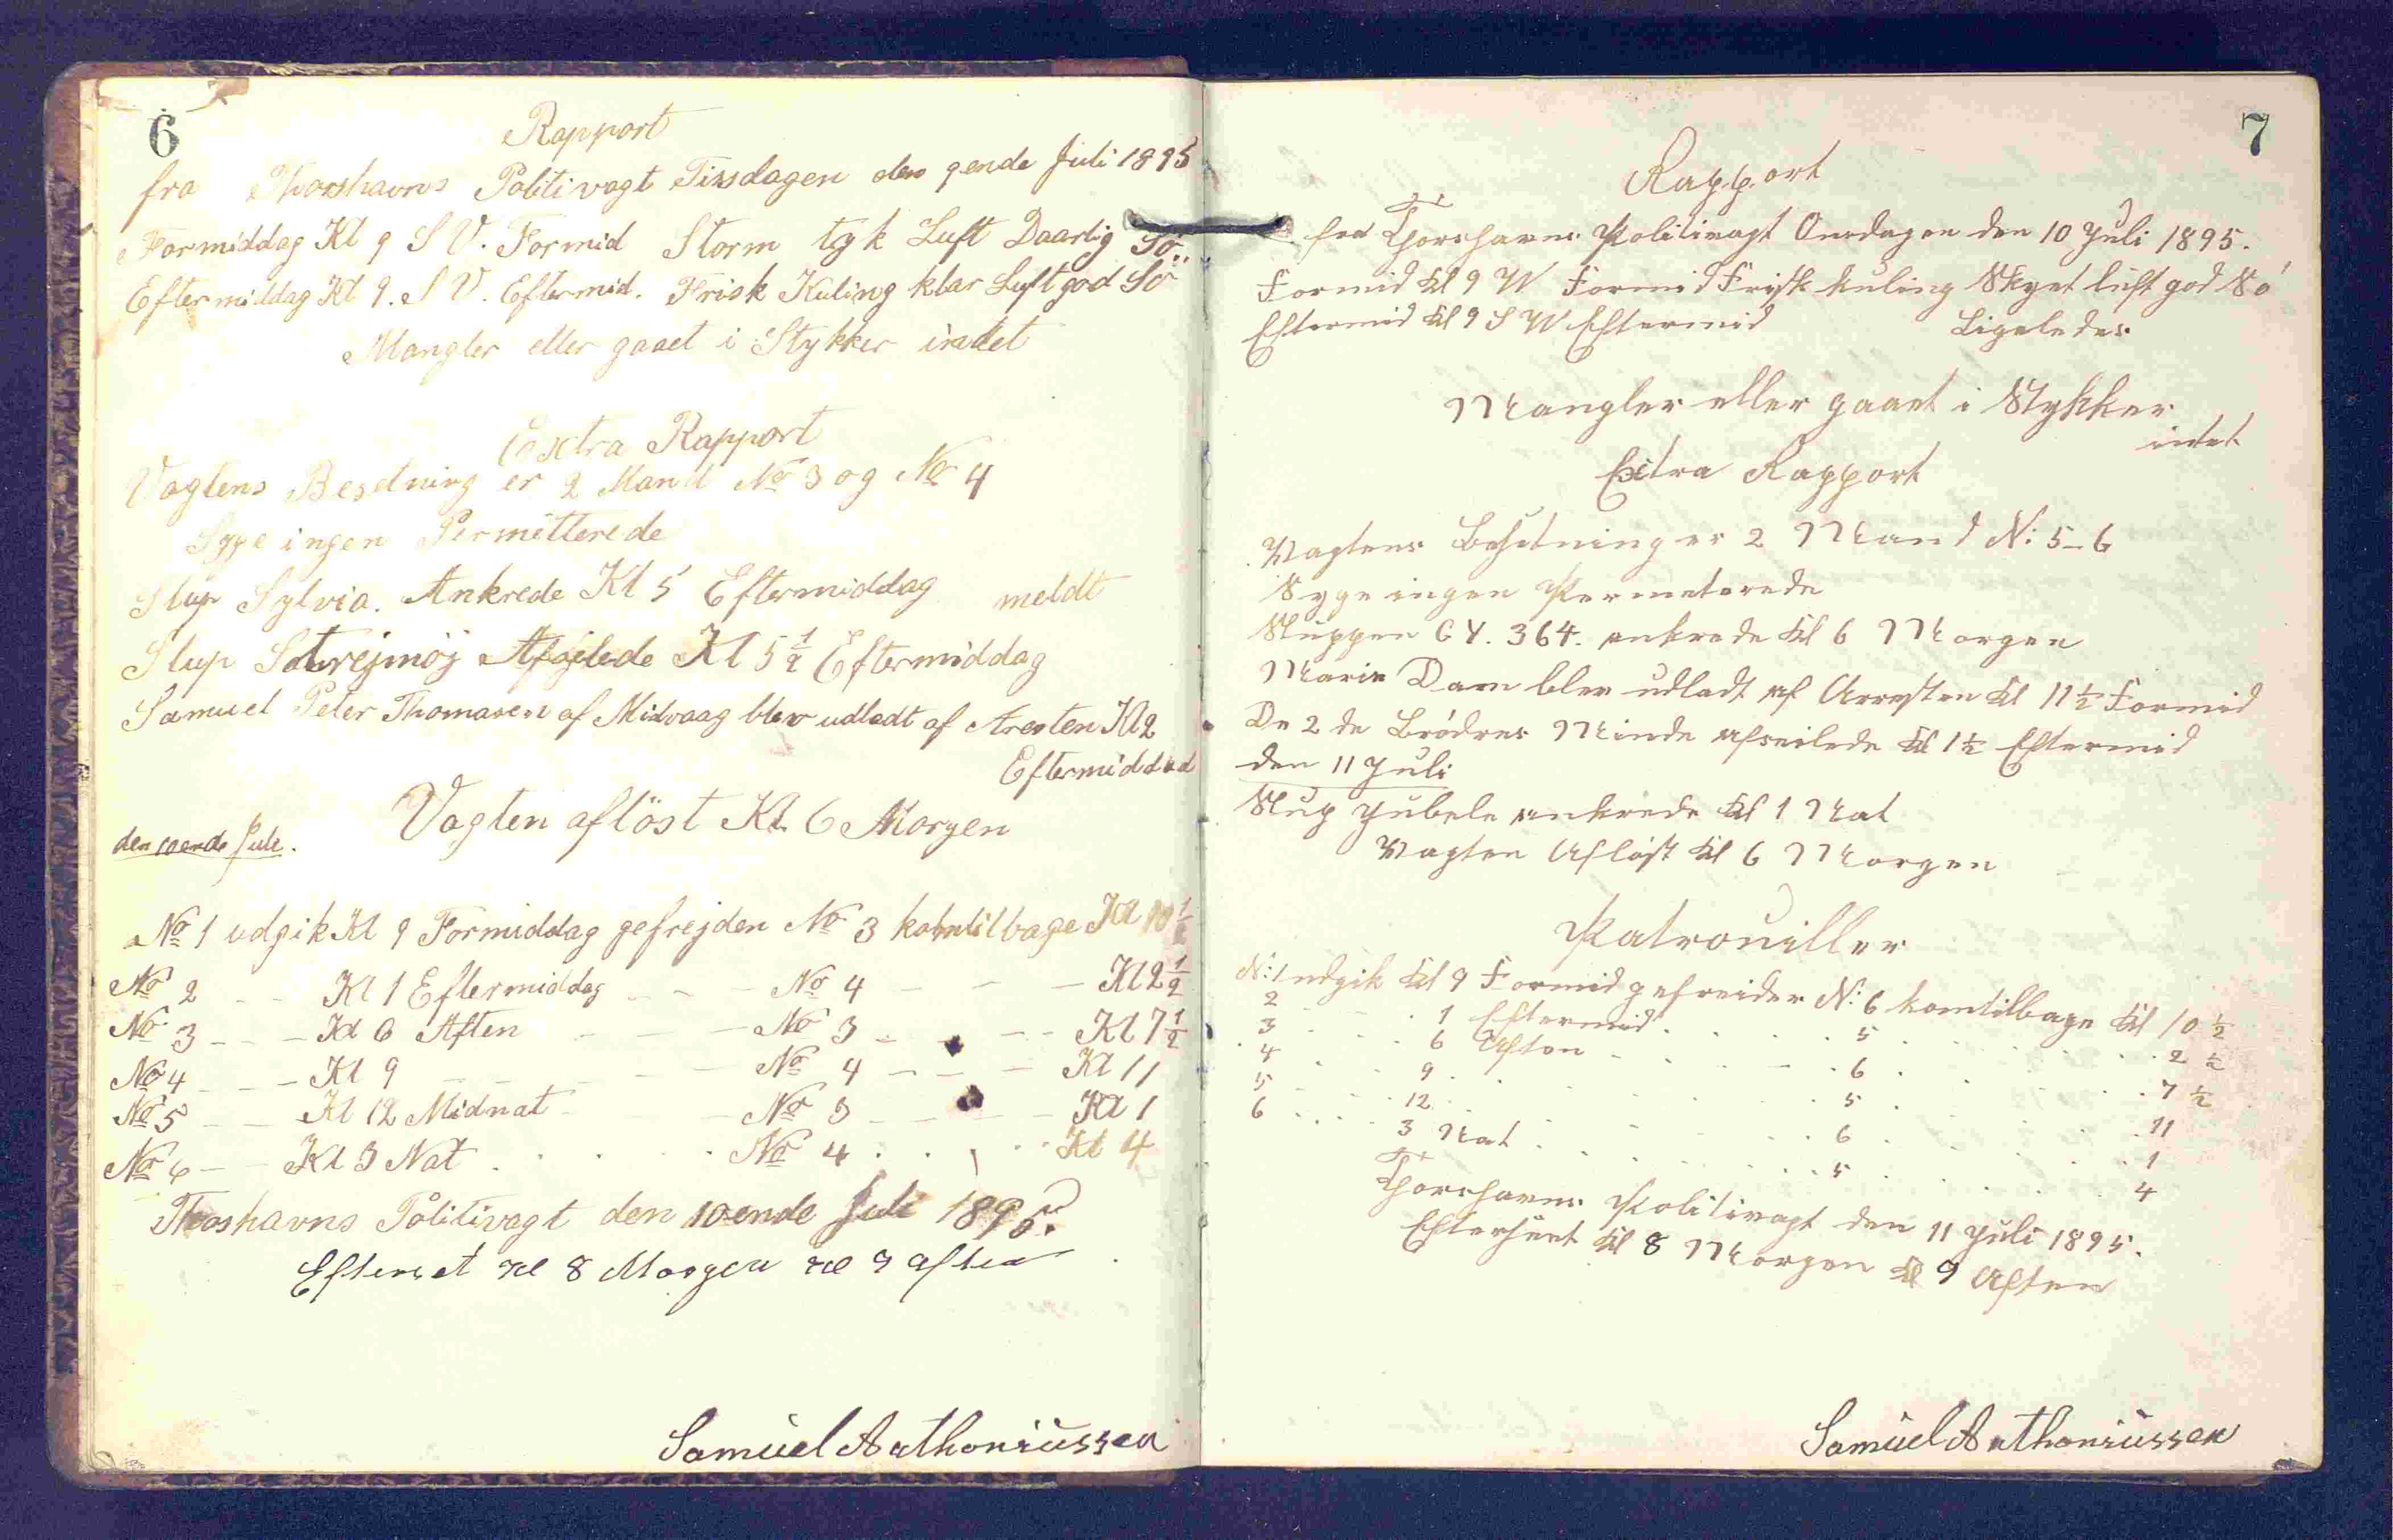 6
Rapport
fra Thorshavns Politivagt Tirsdagen den 9ende Juli 1895
Formiddag Kl 9 S V. Formid Storm tyk Luft Daarlig Sö..
Eftermiddag Kl 9. S V. Eftermid. Frisk Kuling klar Luft god Sö
Mangler eller gaaet i Stykker intet
Extra Rapport
Vagtens Besetning er 2 Mand No 3 og No 4
Syge ingen Permitterede
Slup Sylvia. Ankrede Kl 5 Eftermiddag meldt
Slup Afsejlede Kl 5 1/2 Eftermiddag
Samuel Peter Thomasen af Midvaag blev udladt af Aresten Kl 2
Eftermiddad
Vagten aflöst Kl. 6 Morgen
den 10ende Juli.
No 1 udgik Kl 9 Formiddag gefrejden No 3 komtilbage Kl 10 1/2
No 2 - - Kl 1 Eftermiddag - - - No 4 - - - Kl 2 1/2
No 3 - - - Kl 6 Aften - - - No 3 - - - Kl 7 1/2
No 4 - - - Kl 9 - - - No 4 - - - Kl 11
No 5 - - Kl 12 Midnat - - No 3 - - - Kl 1
No 6 - - Kl 3 Nat . . . . No 4 . . . . Kl 4
Thoshavns Politivagt den 10ende Juli 1895.
Efterset Kl 8 Morgen Kl 9 aften
Samuel Anthoniussen
7
Rapport
fra Thorshavns Politivagt Onsdagen den 10 Juli 1895.
Formid Kl 9 W Formid Frisk kuling Skyet luft god Sö
Eftermid Kl 9 S W Eftermid Ligeledes
Mangler eller gaaet i Stykker
intet
Extra Rapport
Vagtens Besetning er 2 Mand N: 5-6
Syge ingen Permeterede
Sluppen G Y. 364. ankrede Kl 6 Morgen
Marie Dam blev udladt af Arresten Kl 11 1/2 Formid
De 2 de Brödres Minde afseilede Kl 1 1/2 Eftermid
den 11 Juli
Slup Jubele ankrede Kl 1 Nat
Vagten Aflöst Kl 6 Morgen
Patrouiller
N: 1 udgik Kl 9 Formid gefreider N: 6 komtilbage Kl 10 1/2
2 . . . 1 Eftermid . . . 5 . . . 2 1/2
3 . . . 6 Aften . . . 6 . . . 7 1/2
4 . . . 9 . . . 5 . . . 11
5 . . . 12 . . . 6 . . . 1
6 . . . 3 Nat . . . 5 . . . 4
Thorshavns Politivagt den 11 Juli 1895.
Efterseet Kl 8 Morgen Kl 9 Aften
Samuel Anthoniussen